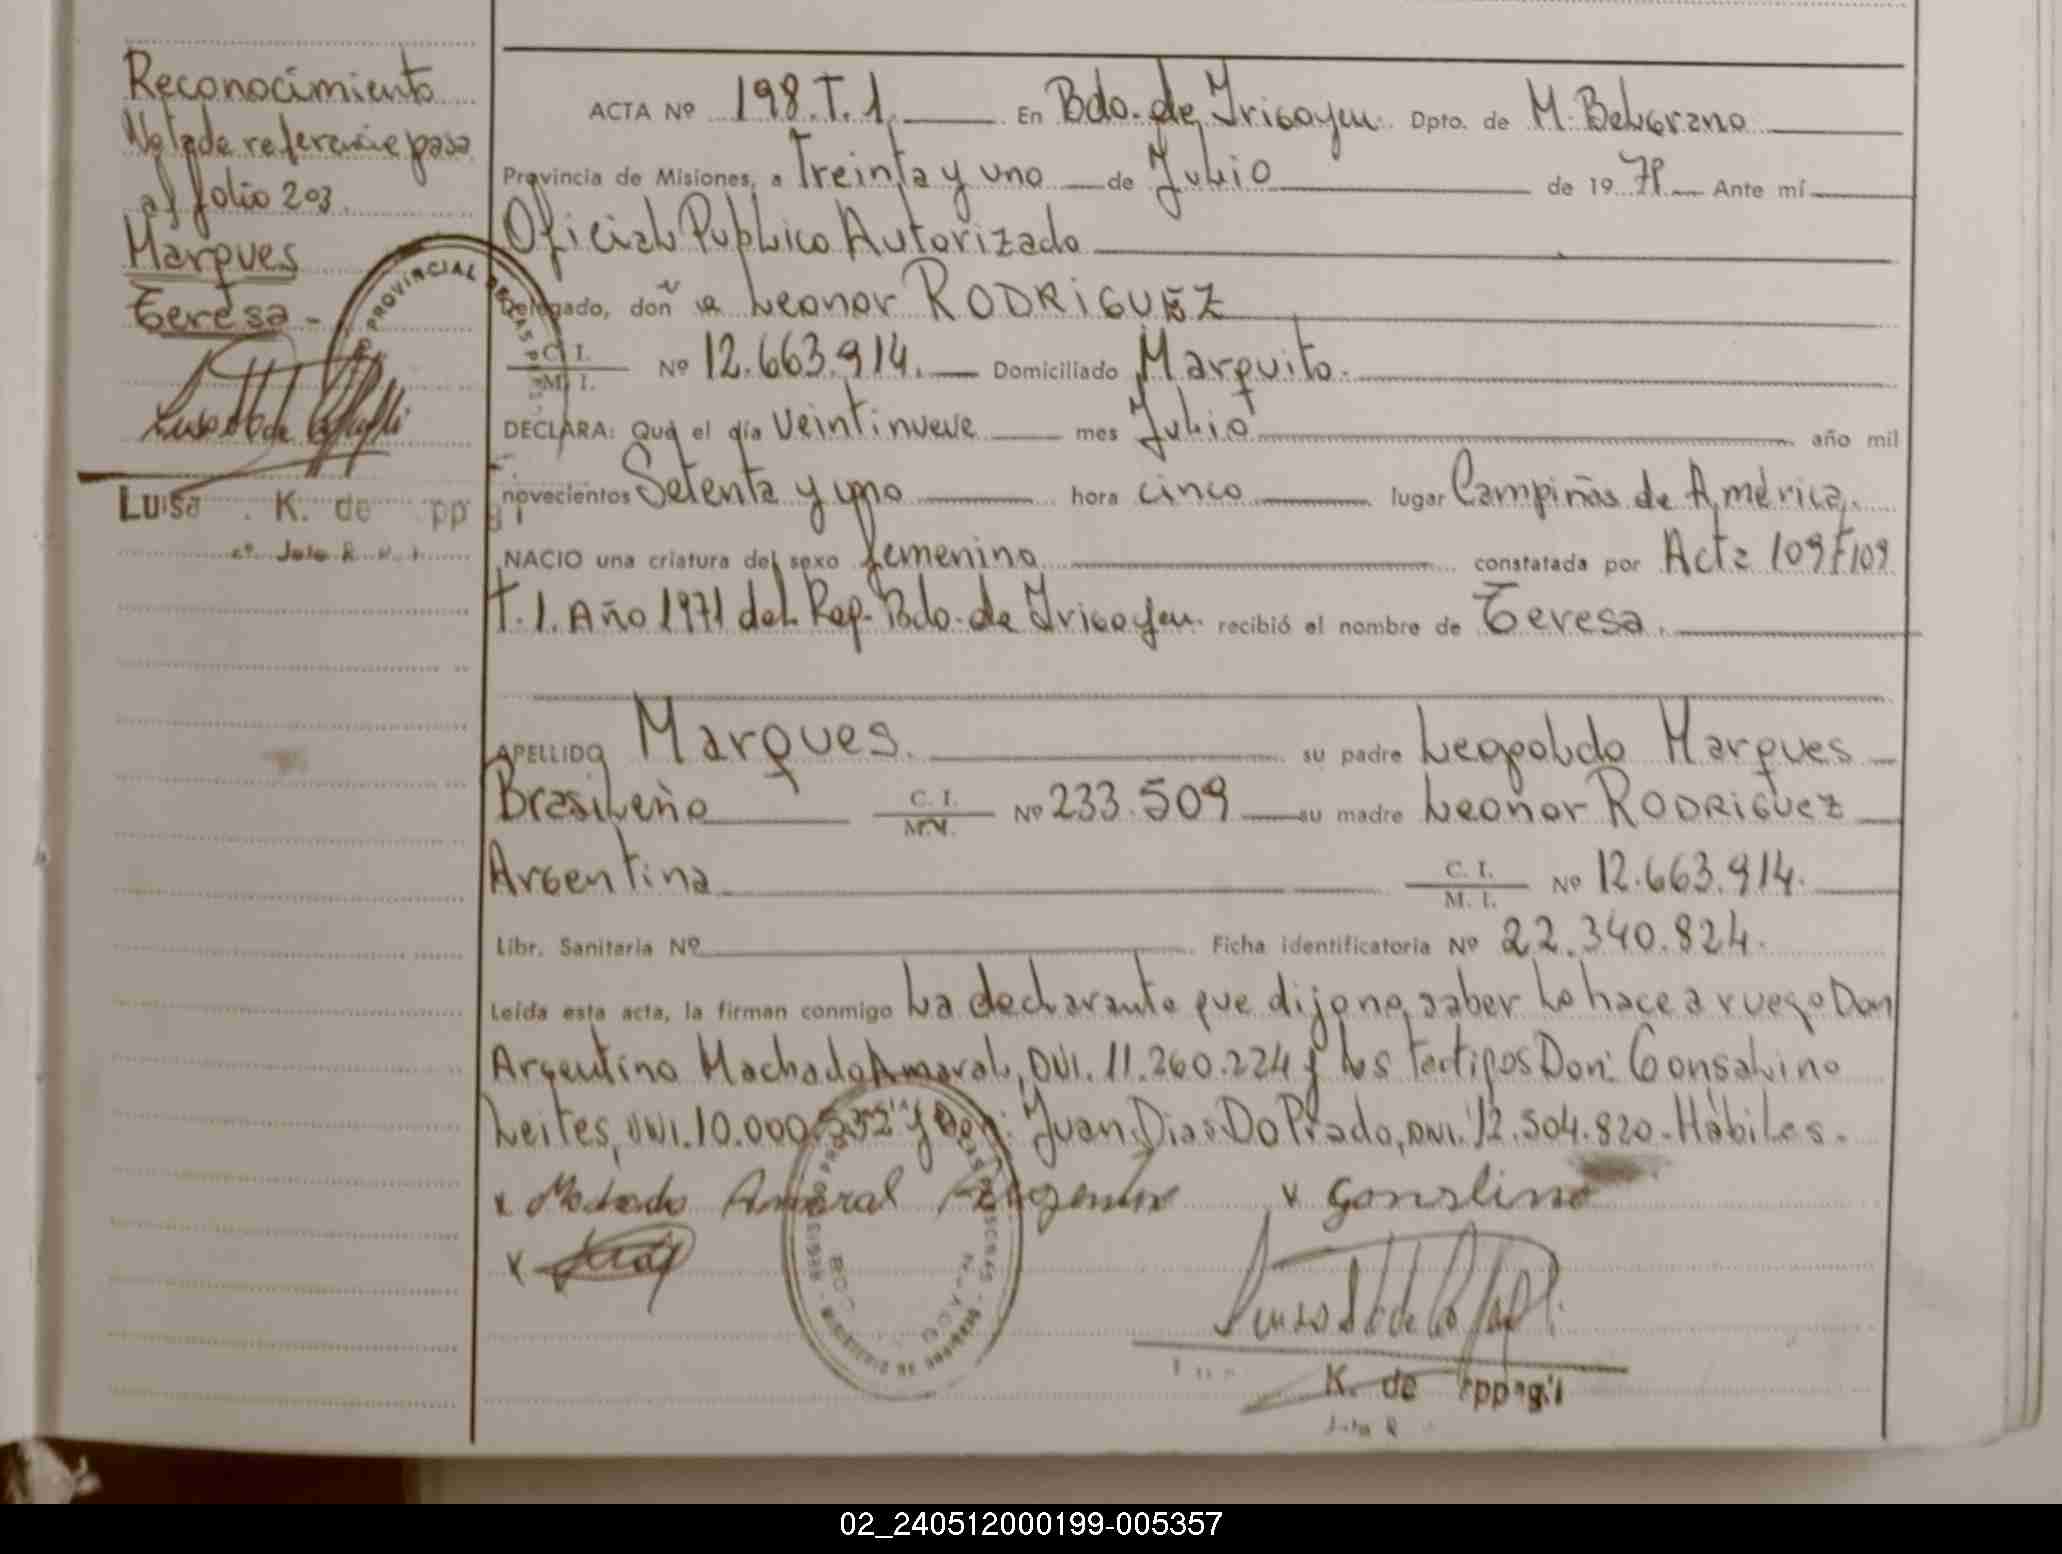 Reconocimiento
Nota de referencia pasa
al folio 203.
Marques
Teresa -
Luisa K. de
ACTA Nº 198.T.1. En Bdo. de Irigoyen. Dpto. de M. Belgrano
Provincia de Misiones, a Treinta y uno de Julio de 19 Ante mí
Oficial Publico Autorizado
Delegado, don Leonor RODRIGUEZ
C. I.
M. I.
Nº 12.663.914. Domiciliado Marquito.
DECLARA: Que el día Veintinueve mes Julio año mil
novecientos Setenta y uno hora cinco lugar Campiñas de América.
NACIO una criatura del sexo femenino constatada por Acta 109 F 109
T. 1. Año 1971 del Rep. Bdo. de Irigoyen. recibió el nombre de Teresa.
APELLIDO Marques. su padre Leopoldo Marques
Brasileño C. I. Nº 233.509 su madre Leonor RODRIGUEZ
Argentina C. I. M. I. Nº 12.663.914.
Libr. Sanitaria Nº Ficha identificatoria Nº 22.340.824.
Leída esta acta, la firman conmigo La declarante que dijo no saber Lo hace a ruego Don
Argentino Machado Amaral, DNI. 11.260.224 y los testigos Don: Gonsalino
Leites, DNI. 10.000.532 y Don: Juan Dias Do Prado, DNI. 12.504.820. Hábiles.
x Machado Amaral Argentino x Gonslino
x
K. de
02_240512000199-005357